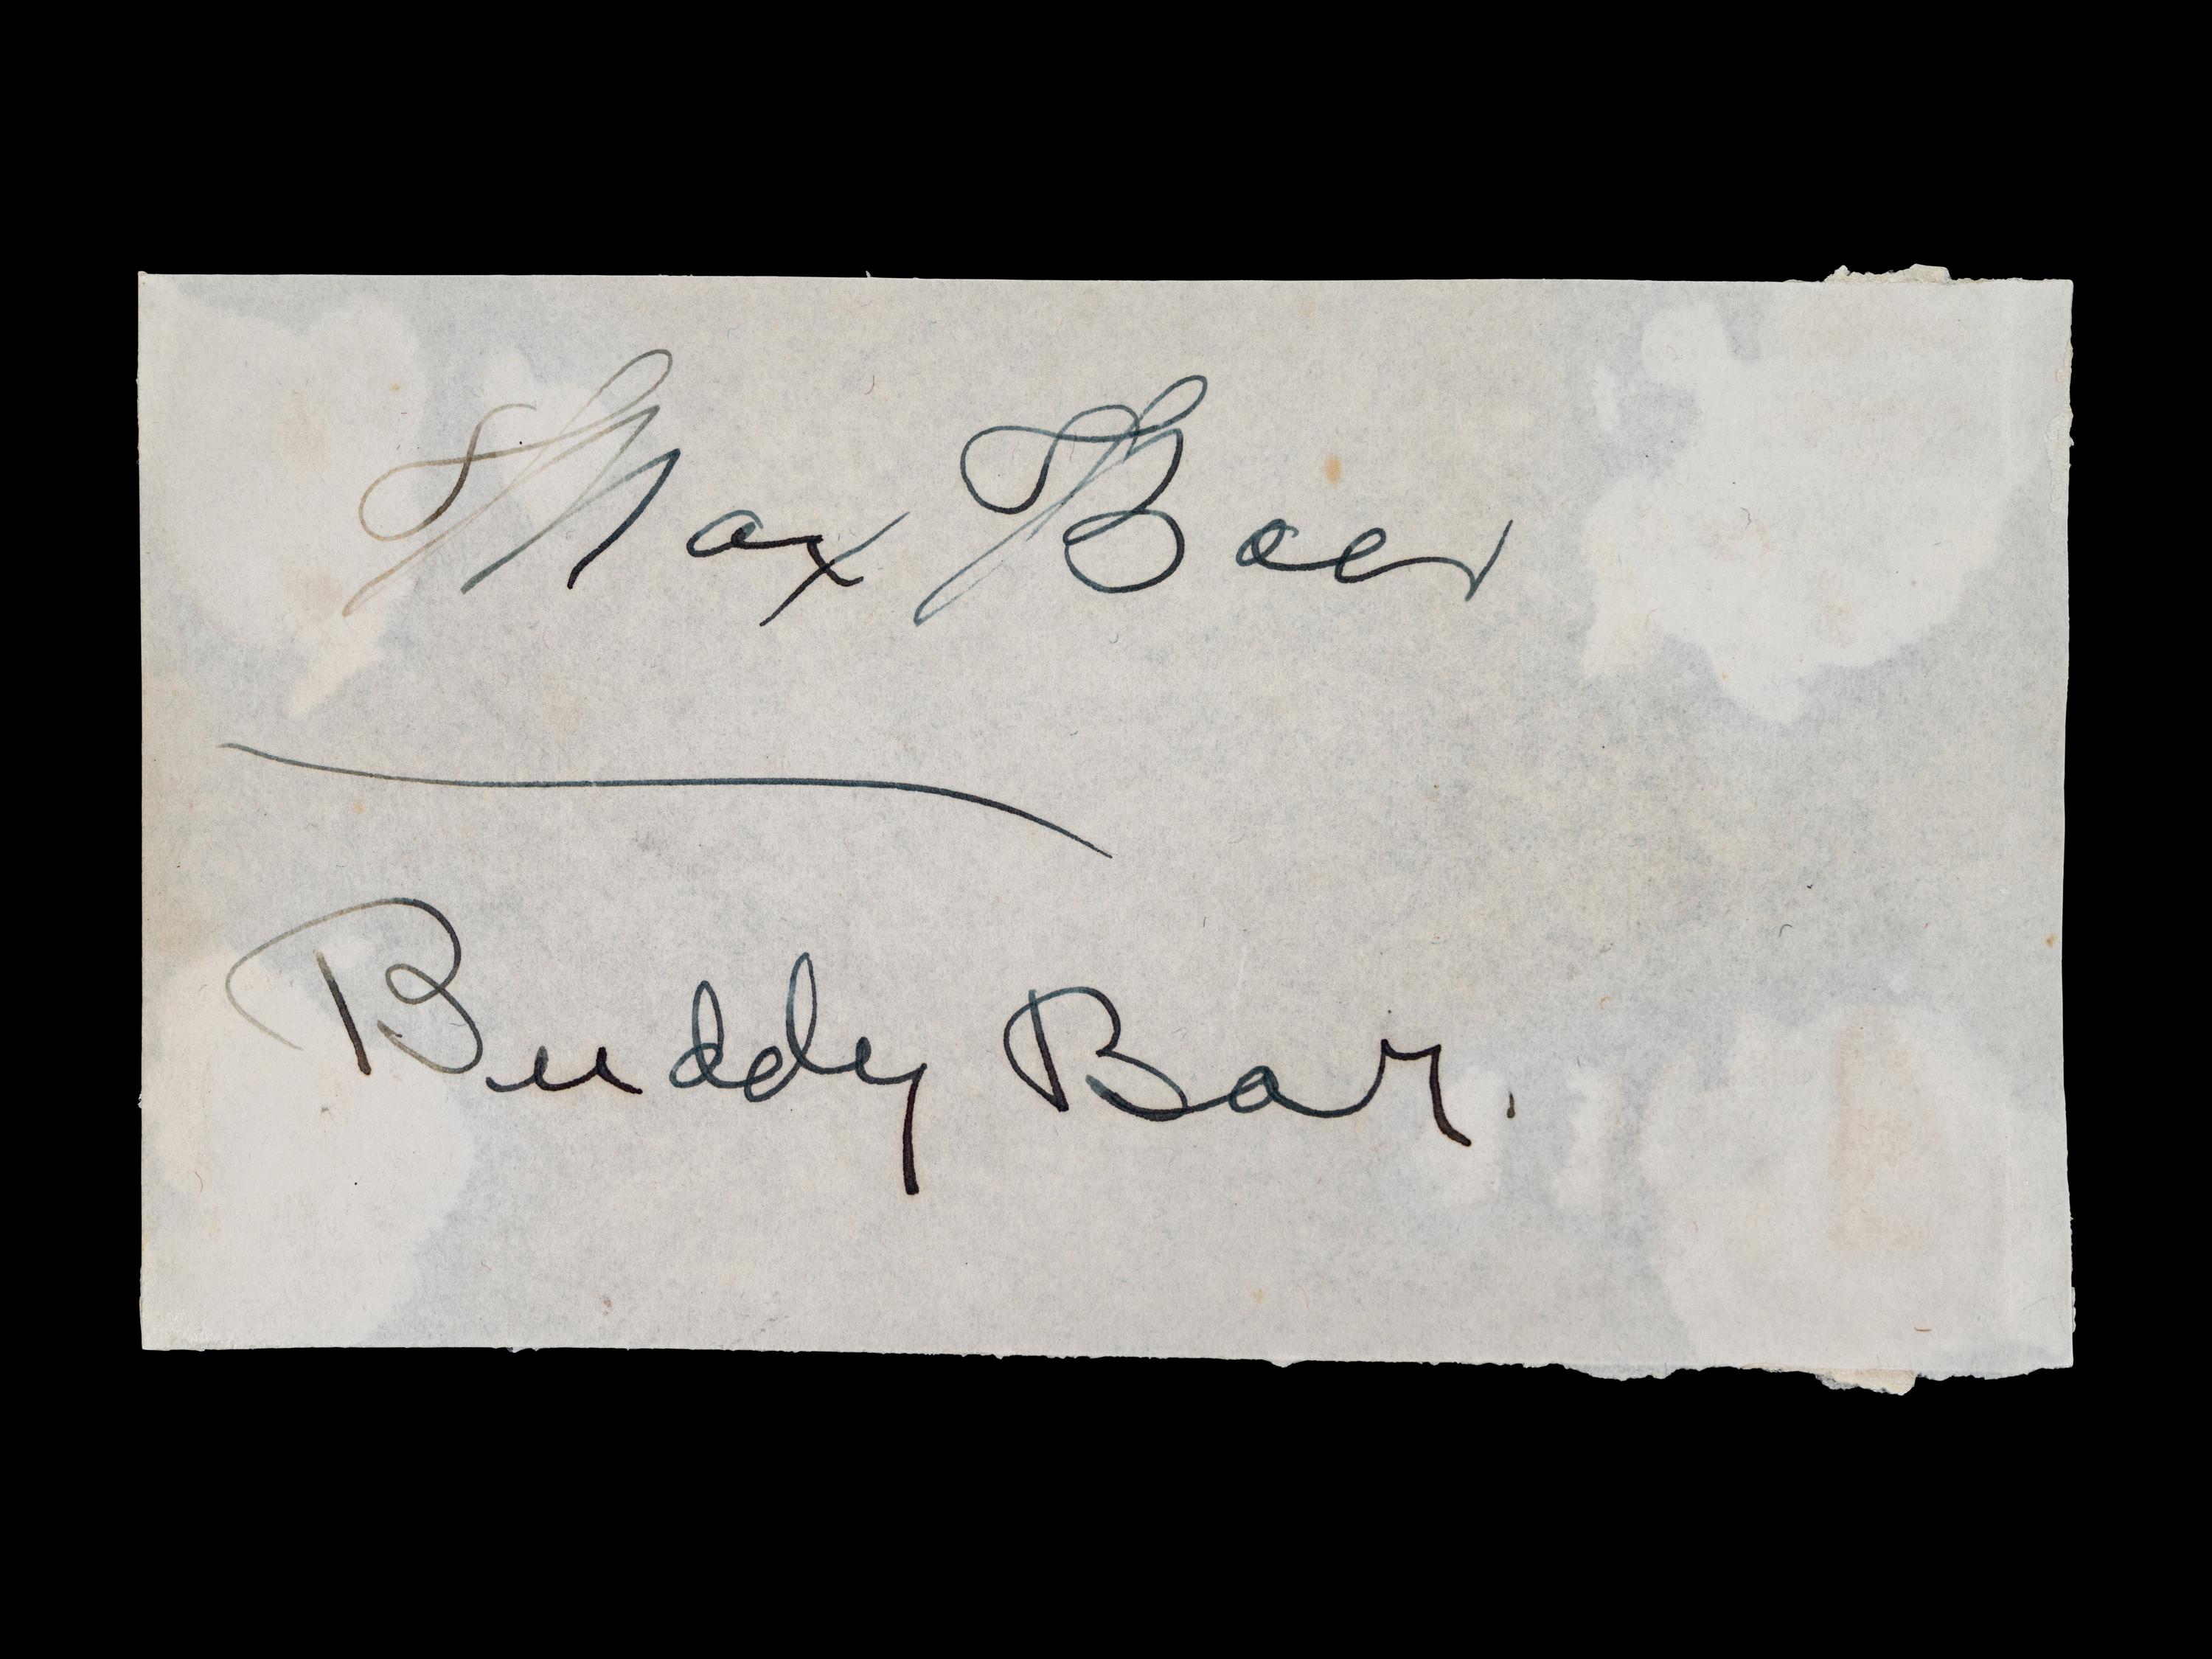 Max Baer
Buddy Baer.